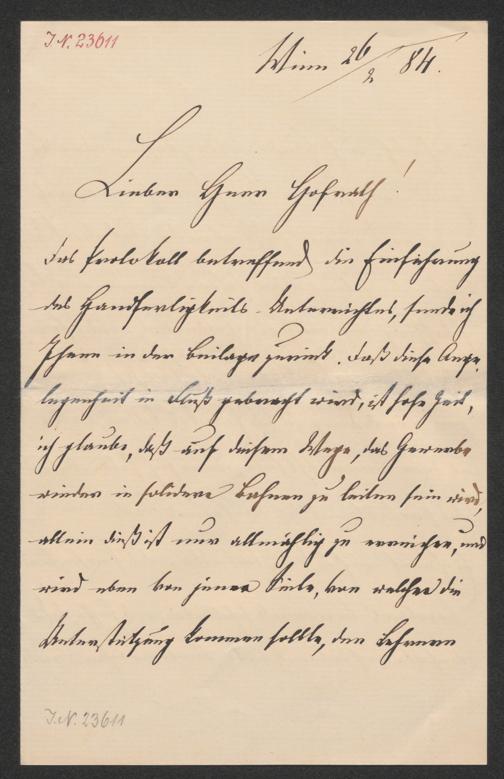 J.N. 23611
Wien 26/2 84.
Lieber Herr Hofrath!
Das Protokoll betreffend die Einführung
des Handfertigkeits-Unterrichtes, sende ich
Ihnen in der Beilage zurück. Daß diese Ange-
legenheit in Fluß gebracht wird, ist hohe Zeit,
ich glaube, daß auf diesem Wege, das Gewerbe
wieder in solidere Bahnen zu leiten sein wird,
allein dieß ist nur allmählig zu erreichen, und
wird eben von jener Seite, von welcher die
Unterstützung kommen sollte, den Lehrern
J.N. 23611